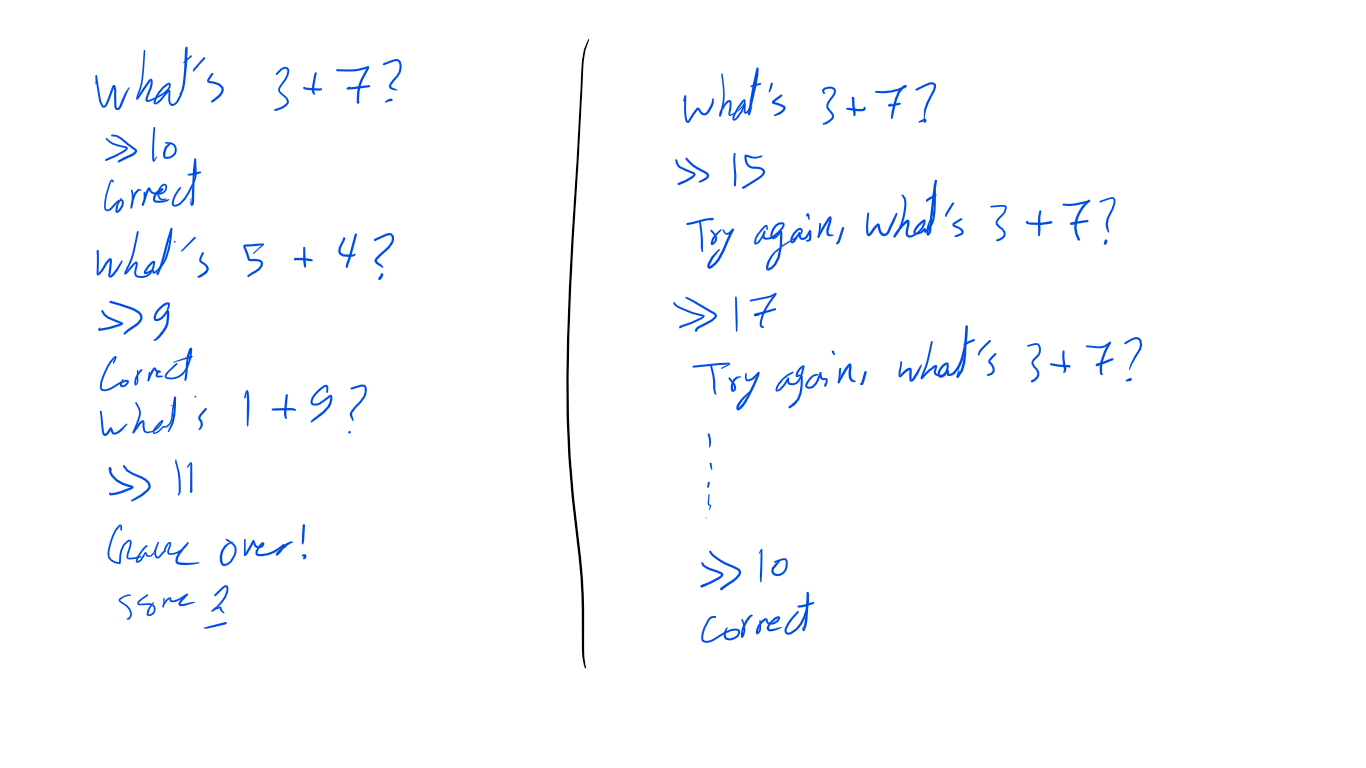 What's 3 + 7?
>> 10
Correct
What's 5 + 4?
>> 9
Correct
What's 1 + 9?
>> 11
Game over!
score 2
What's 3 + 7?
>> 15
Try again, What's 3 + 7?
>> 17
Try again, what's 3 + 7?
>> 10
Correct